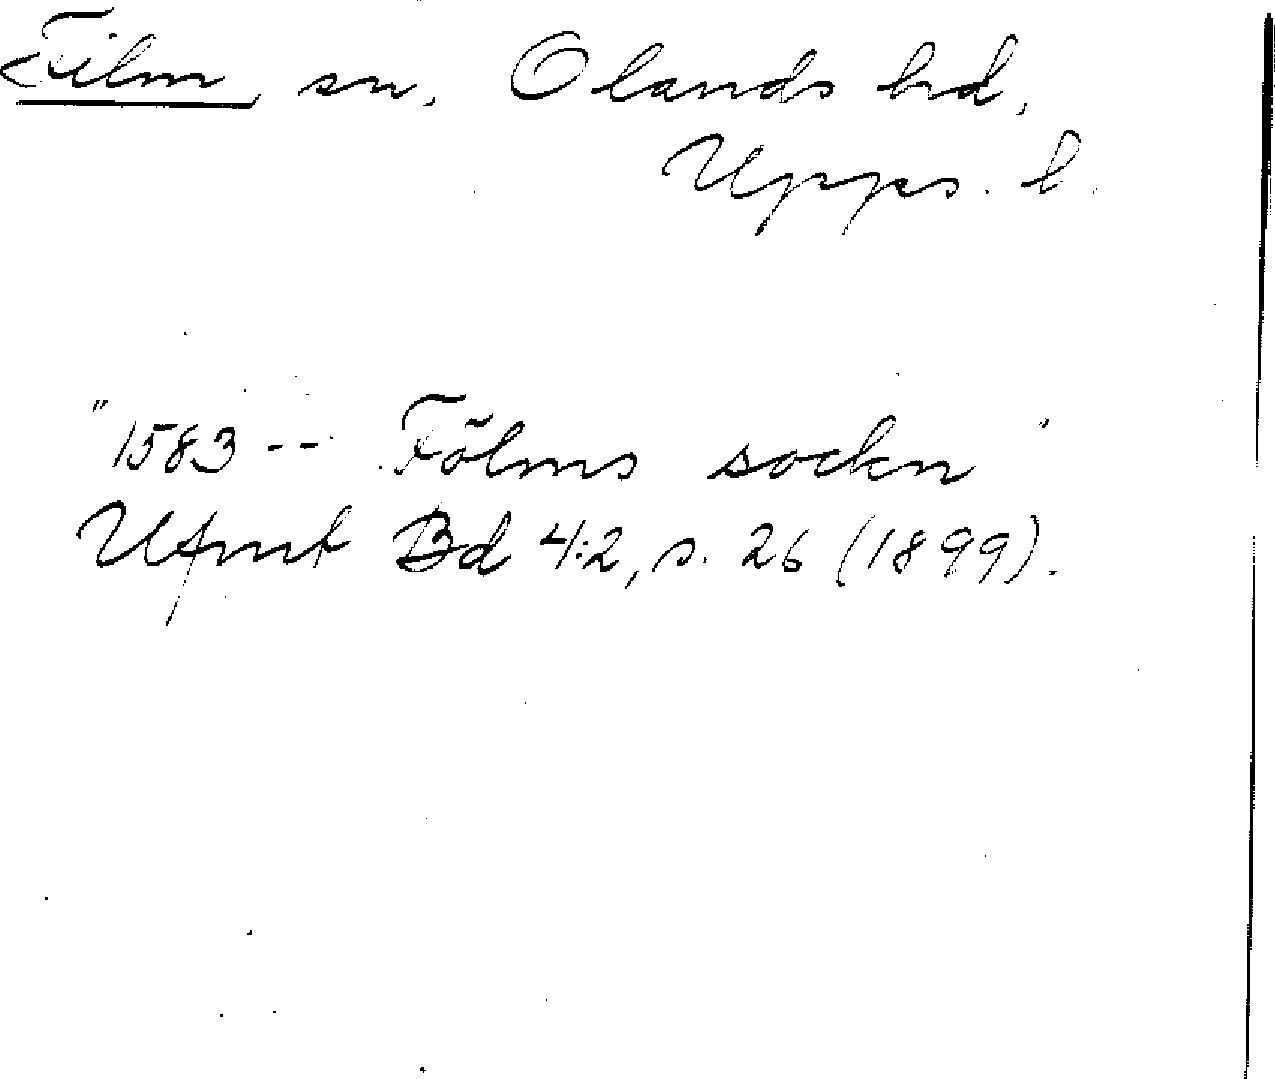 Film, sn. Olands hd,
Upps. l.
"1583 -- Fölms sockn"
Ufmt Bd 4:2, s. 26 (1899).